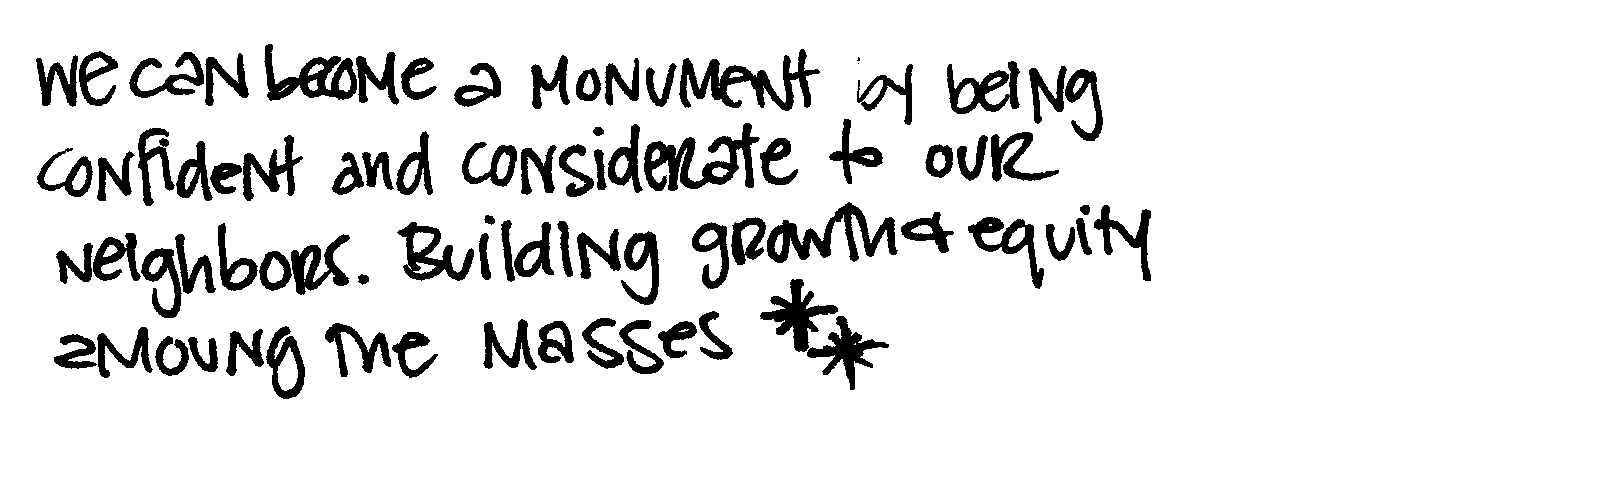 We can become a monument by being
confident and considerate to our
neighbors. Building growth & equity
amoung the masses **